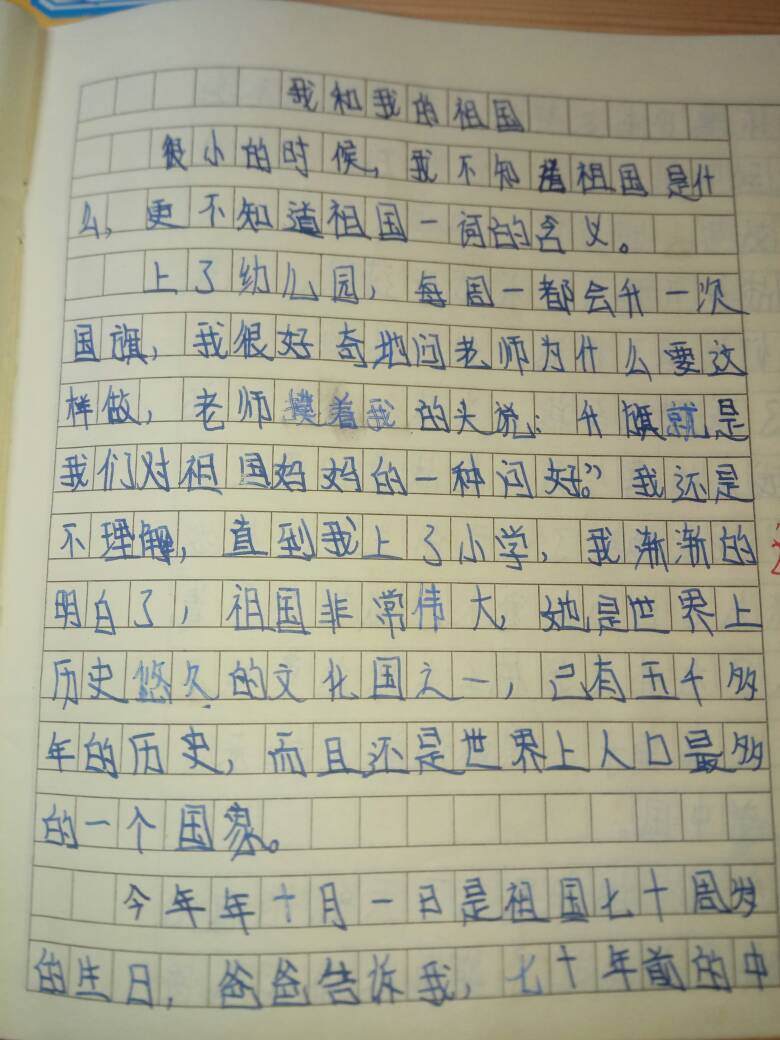 我和我的祖国
很小的时候，我不知道祖国是什
么，更不知道祖国一词的含义。
上了幼儿园，每周一都会升一次
国旗，我很好奇地问老师为什么要这
样做，老师摸着我的头说：升旗就是
我们对祖国妈妈的一种问好。”我还是
不理解，直到我上了小学，我渐渐的
明白了，祖国非常伟大，她是世界上
历史悠久的文化国之一，已有五千多
年的历史，而且还是世界上人口最多
的一个国家。
今年年十月一日是祖国七十周岁
的生日，爸爸告诉我，七十年前的中